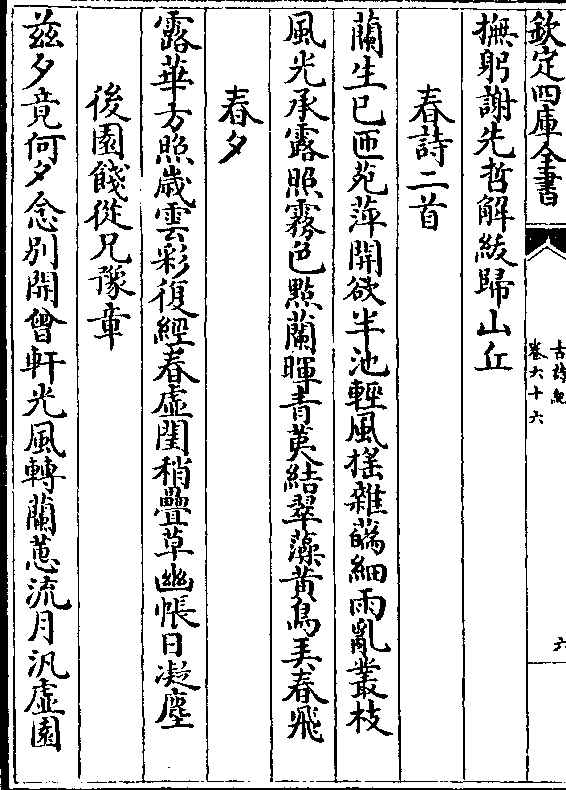 欽定四庫全書
古詩紀
卷六十六
六
撫躬謝先哲解紱歸山丘
春詩二首
蘭生已匝苑萍開欲半池輕風揺雜蘤細雨亂叢枝
風光承露照霧色㸃蘭暉青荑結翠藻黄鳥弄春飛
春夕
露華方照歲雲彩復經春虚閨稍疊草幽帳日凝塵
後園餞從兄豫章
兹夕竟何夕念别開曾軒光風轉蘭蕙流月汎虚園